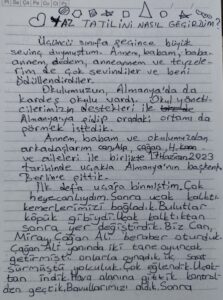 YAZ TATİLİNİ NASIL GEÇİRDİM?
Üçüncü sınıfa geçince büyük
sevinç duymuştum. Annem, babam, baba-
annem, dedem, anneannem ve teyzele-
rim de çok sevindiler ve beni
ödüllendirdiler.
Okulumuzun, Almanya'da da
kardeş okulu vardı. Okul yöneti-
cilerimizin destekleri ile
Almanya'ya gidip oradaki ortamı da
görmek istedik.
Annem, babam ve okulumuzdan
arkadaşlarım Çağan,
ve aileleri ile birlikte 17 Haziran 2023
tarihinde uçakla Almanya'nın başkenti
Berlin'e gittik.
İlk defa uçağa binmiştim. Çok
heyecanlıydım. Sonra uçak kalktı
kemerlerimizi bağladık. Bulutlar
köpük gibiydi. Uçak kalktıktan
sonra yer değiştirdik. Biz Can,
Miray, Çağan Ali beraber oturduk.
Çağan Ali yanında iki tane oyuncak
getirmişti onlarla oynadık iki saat
sürmüştü yolculuk. Çok eğlendik. Uçaktan
indik. Hava alanına girdik. Kontrol-
den geçtik. Bavullarımızı aldık. Sonra